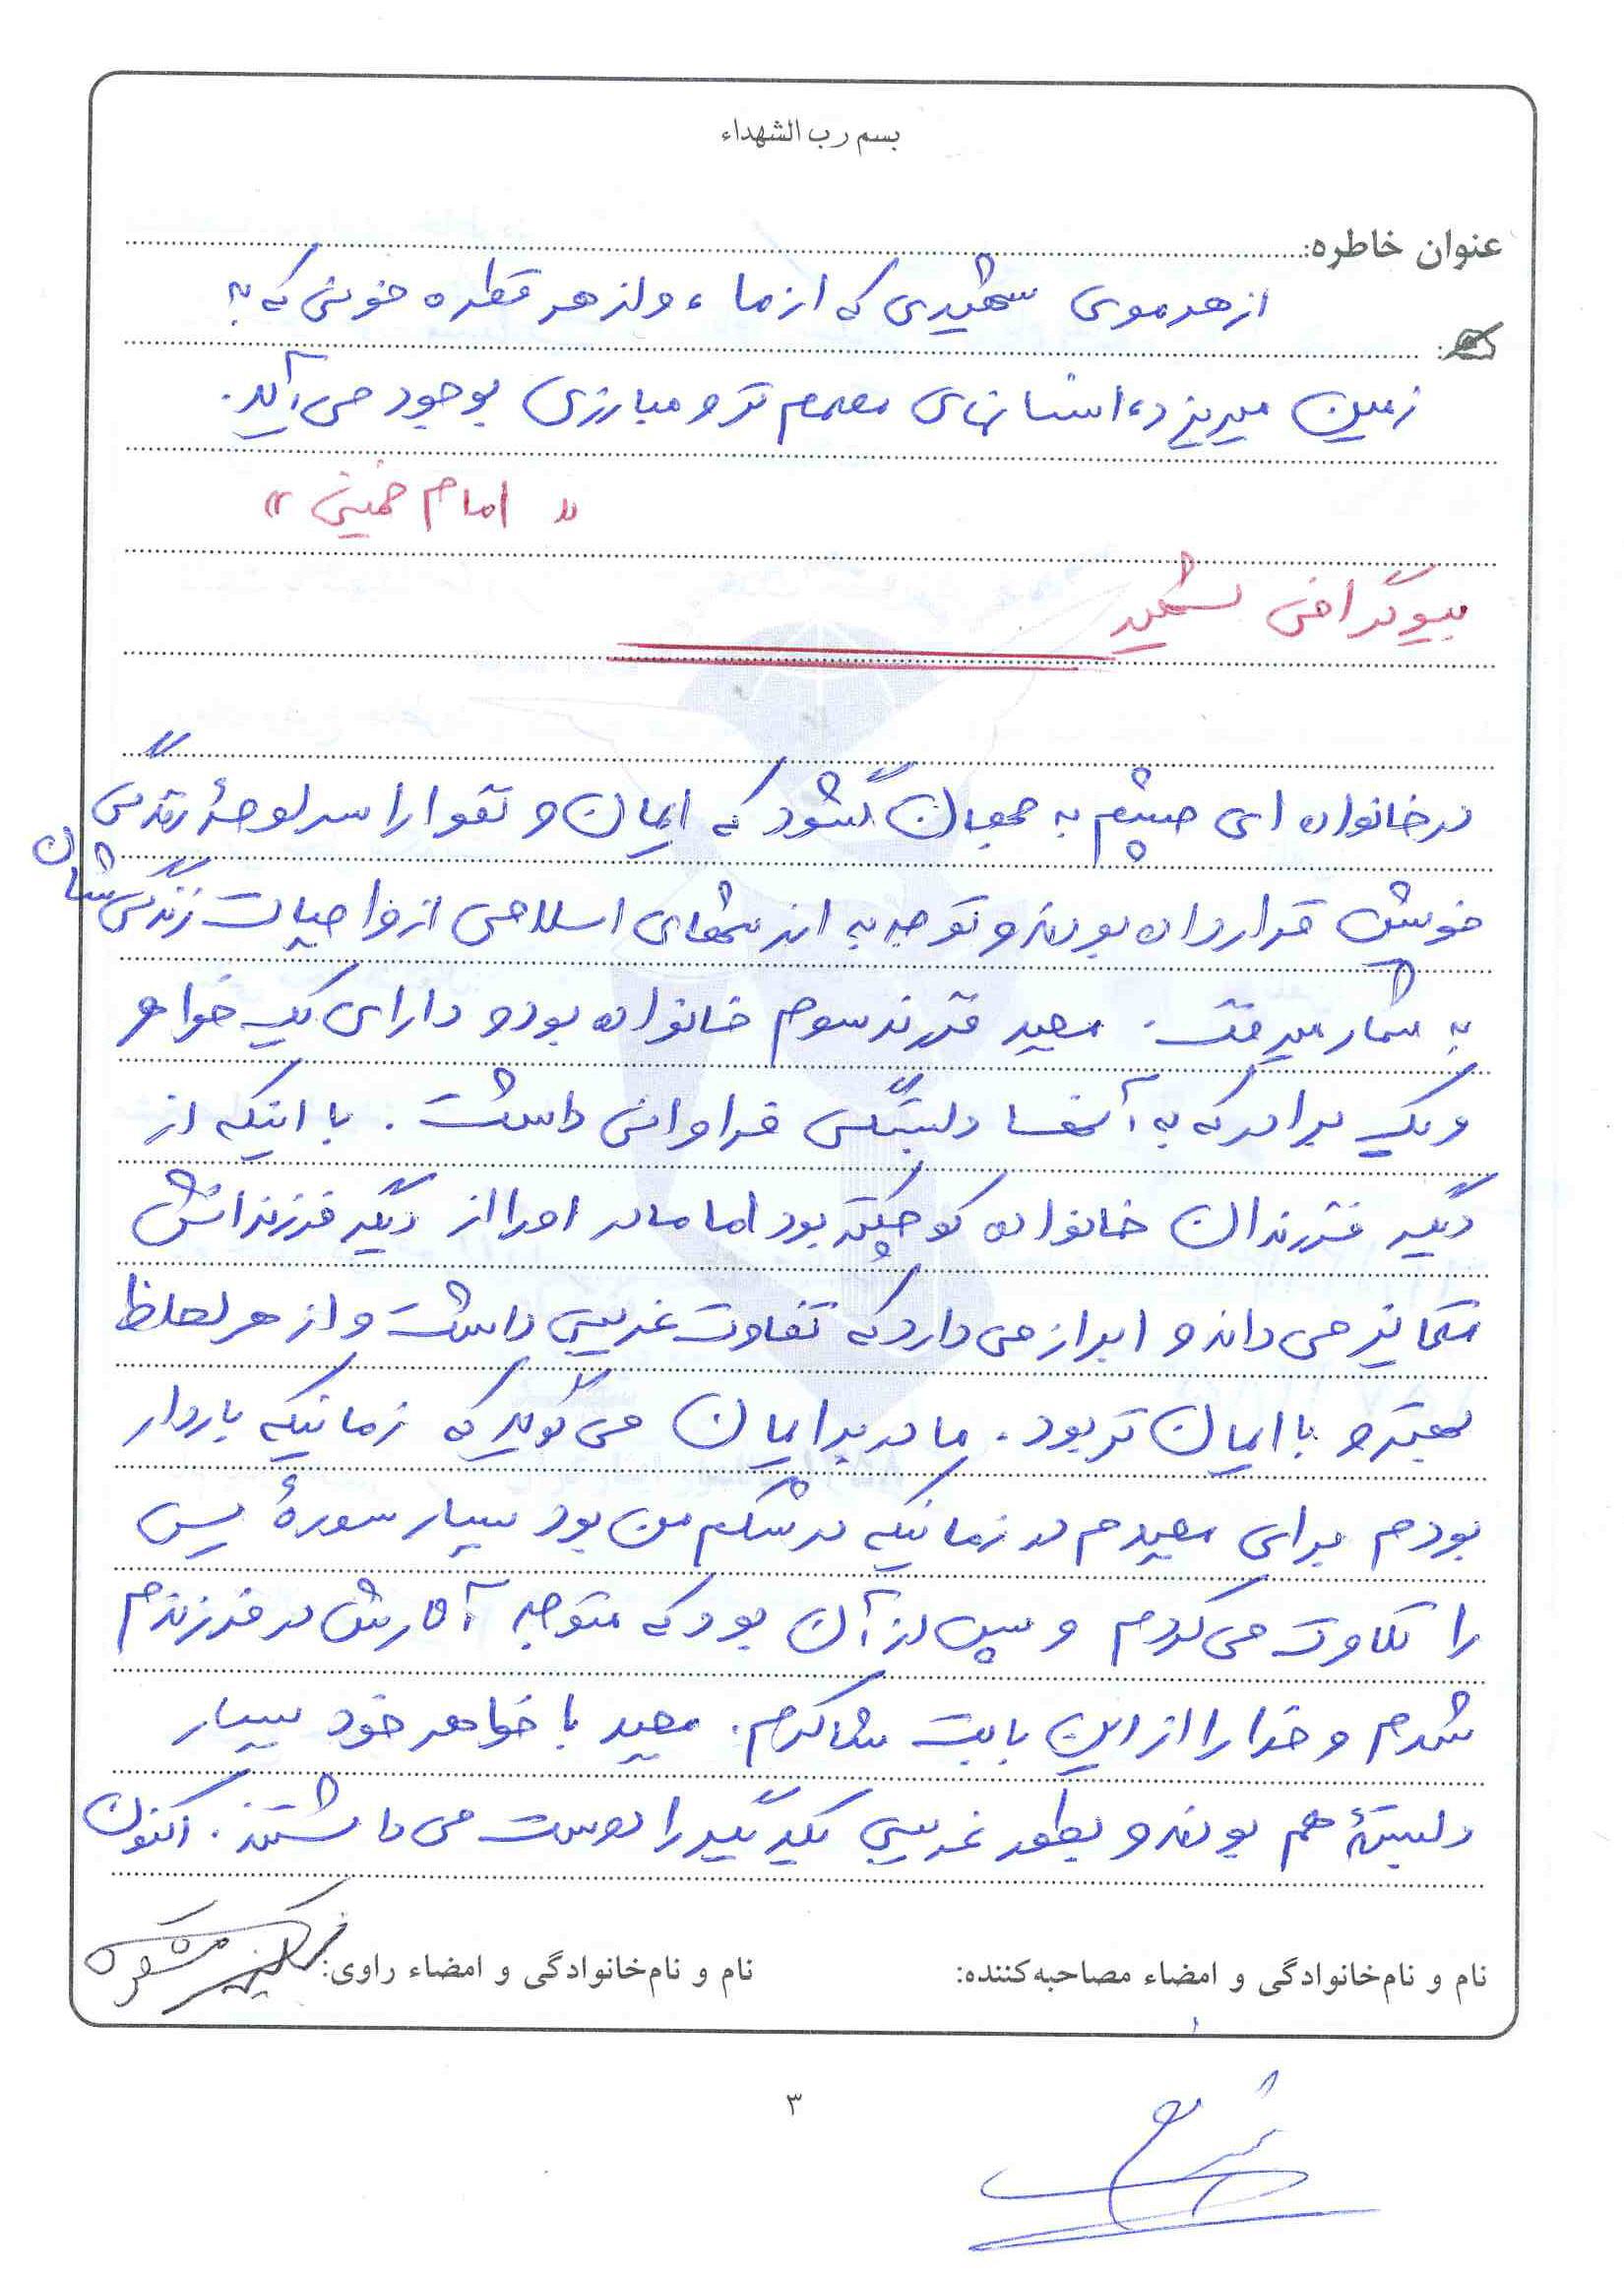 بسم رب الشهداء
عنوان خاطره:
از هر موی شهیدی که از ما، و از هر قطره خونی که به
زمین میریزد، انسانهای مصمم تر و مبارزی بوجود می آید.
« امام خمینی »
بیوگرافی شهید
در خانواده ای چشم به جهان گشود که ایمان و تقوا را سرلوحهٔ زندگی
خویش قرار داده بودند و توجه به اندیشههای اسلامی از واجبات زندگی شان
به شمار میرفت. سعید فرزند سوم خانواده بود و دارای یک خواهر
و یک برادر که به آنها دلبستگی فراوانی داشت. با اینکه از
دیگر فرزندان خانواده کوچکتر بود اما مادر او را از دیگر فرزندانش
متمایز می داند و ابراز می دارد که تفاوت عجیبی داشت و از هر لحاظ
بهتر و با ایمان تر بود. مادر برایمان می گوید که زمانیکه باردار
بودم برای سعیدم در زمانیکه در شکم من بود بسیار سورهٔ یس
را تلاوت می کردم و پس از آن بود که متوجه آثارش در فرزندم
شدم و خدا را از این بابت شاکرم. سعید با خواهر خود بسیار
دلبستهٔ هم بودند و بطور غریبی یکدیگر را دوست می داشتند. اکنون
نام و نام‌خانوادگی و امضاء مصاحبه‌کننده:
نام و نام‌خانوادگی و امضاء راوی:
۳